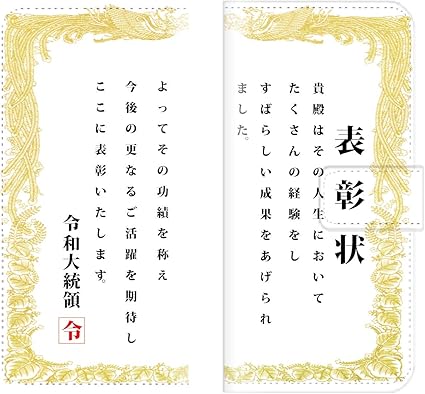 表彰状
貴殿はその人生において
たくさんの経験をし
すばらしい成果をあげられ
ました。
よってその功績を称え
今後の更なるご活躍を期待し
ここに表彰いたします。
令和大統領
令